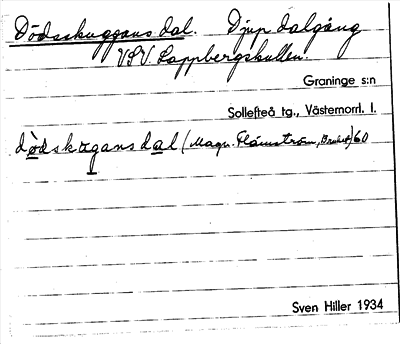 Dödsskuggans dal. Djup dalgång
VSV. Lappbergskullen.
Graninge s:n
Sollefteå tg., Västernorrl. l.
dö̀dskɷgansdal (Magn. Flämström, Bruket) 60
Sven Hiller 1934